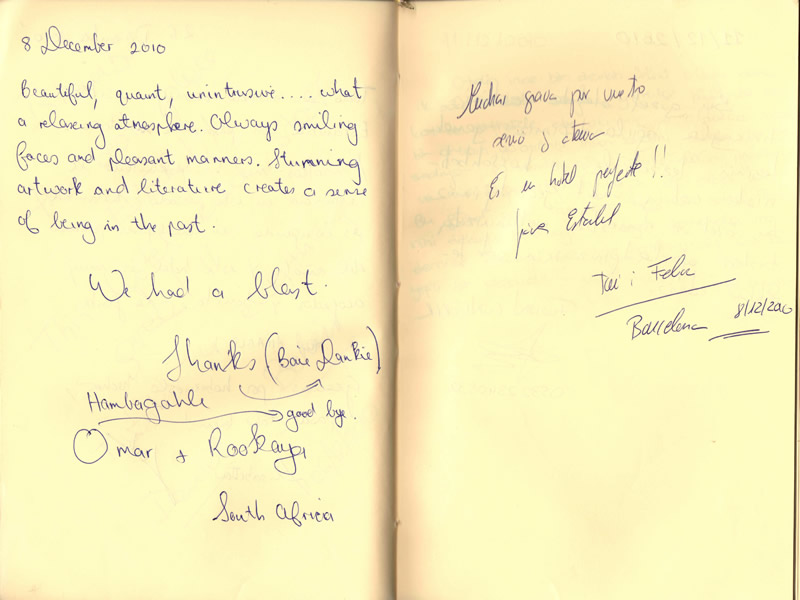 8 December 2010
Beautiful, quaint, unintrusive.... what
a relaxing atmosphere. Always smiling
faces and pleasant manners. Stunning
artwork and literature creates a sense
of being in the past.
We had a blast.
Thanks (Baie Dankie)
Hambagahle
good bye.
Omar + Rookaya
South Africa
por
y
Es un hotel perfecte !!
i
Barcelona 8/12/2010